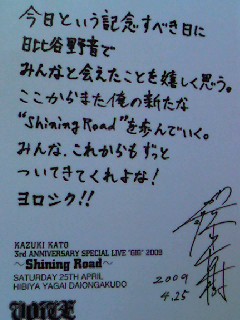 今日という記念すべき日に
日比谷野音で
みんなと会えたことを嬉しく思う。
ここからまた俺の新たな
“Shining Road”を歩んでいく。
みんな、これからもずっと
ついてきてくれよな!
ヨロシク!!
KAZUKI KATO
3rd ANNIVERSARY SPECIAL LIVE "GIG" 2009
~Shining Road~
SATURDAY 25TH APRIL
HIBIYA YAGAI DAIONGAKUDO
2009
4.25